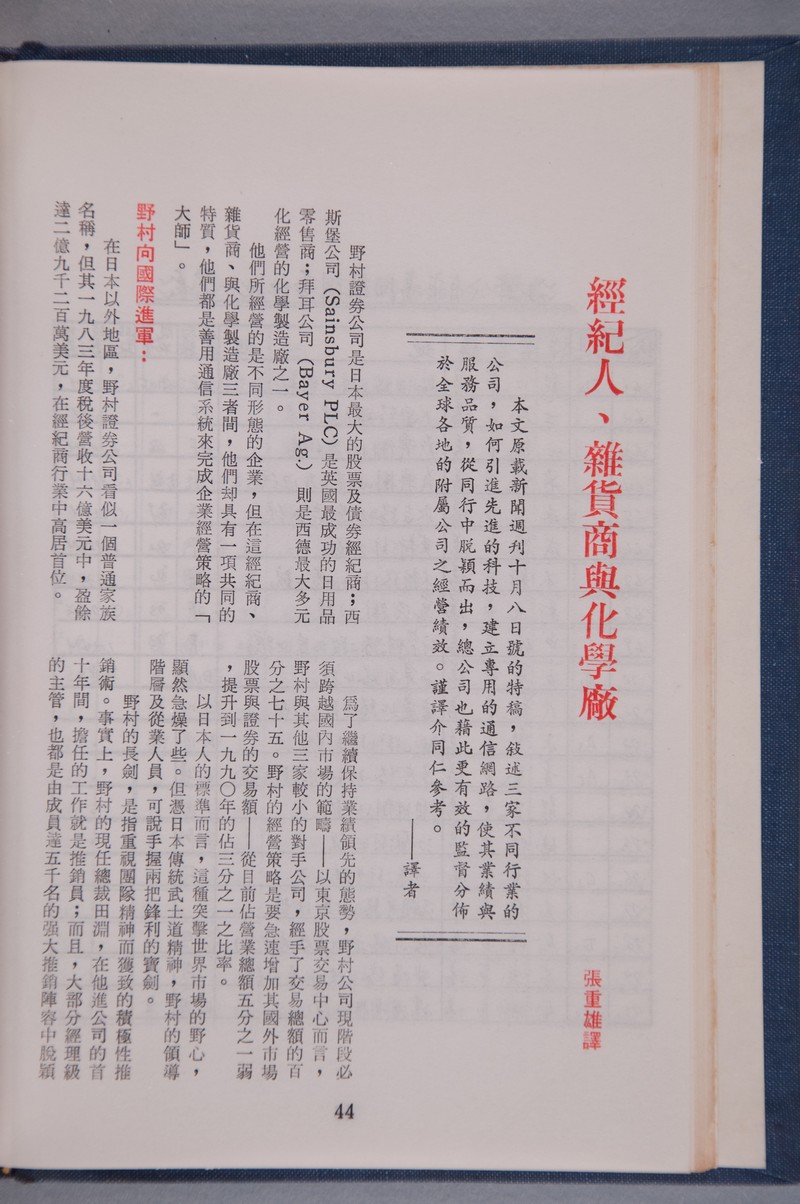 經紀人、雜貨商與化學廠
張重雄譯
本文原載新聞週刊十月八日號的特稿，敍述三家不同行業的
公司，如何引進先進的科技，建立專用的通信網路，使其業績與
服務品質，從同行中脫穎而出，總公司也藉此更有效的監督分佈
於全球各地的附屬公司之經營績效。謹譯介同仁參考。
——譯者
野村證券公司是日本最大的股票及債券經紀商；西
斯堡公司（Sainsbury PLC）是英國最成功的日用品
零售商；拜耳公司（Bayer Ag.）則是西德最大多元
化經營的化學製造廠之一。
他們所經營的是不同形態的企業，但在這經紀商、
雜貨商、與化學製造廠三者間，他們却具有一項共同的
特質，他們都是善用通信系統來完成企業經營策略的「
大師」。
野村向國際進軍：
在日本以外地區，野村證券公司看似一個普通家族
名稱，但其一九八三年度稅後營收十六億美元中，盈餘
達二億九千二百萬美元，在經紀商行業中高居首位。
爲了繼續保持業績領先的態勢，野村公司現階段必
須跨越國內市場的範疇——以東京股票交易中心而言，
野村與其他三家較小的對手公司，經手了交易總額的百
分之七十五。野村的經營策略是要急速增加其國外市場
股票與證券的交易額——從目前佔營業總額五分之一弱
，提升到一九九〇年的佔三分之一之比率。
以日本人的標準而言，這種突擊世界市場的野心，
顯然急燥了些。但憑日本傳統武士道精神，野村的領導
階層及從業人員，可說手握兩把鋒利的寶劍。
野村的長劍，是指重視團隊精神而獲致的積極性推
銷術。事實上，野村的現任總裁田淵，在他進公司的首
十年間，擔任的工作就是推銷員；而且，大部分經理級
的主管，也都是由成員達五千名的强大推銷陣容中脫穎
44